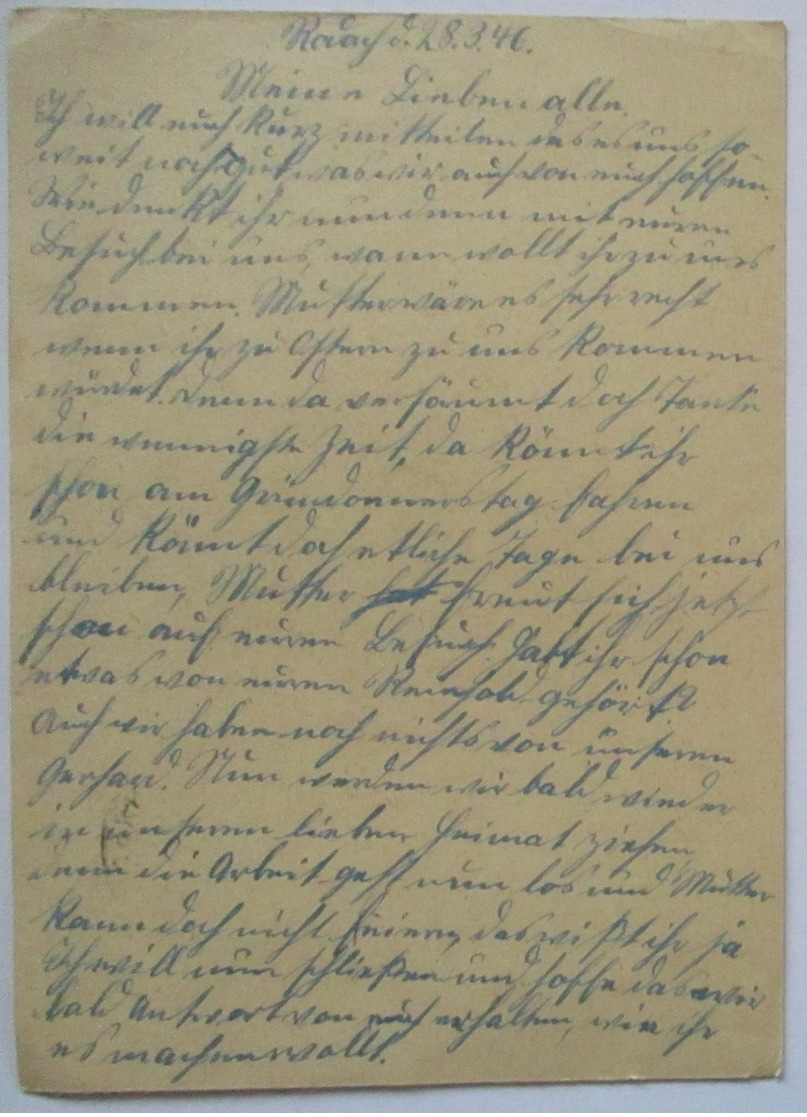 d. 28.3.46.
Meine Lieben alle.
Ich will euch kurz mitteilen das es uns so-
weit noch gut was wir auch von euch hoffen.
Wie denkt ihr nun denn mit euren
Besuch bei uns, wann wollt ihr zu uns
kommen. Mutter wäre es sehr recht
wenn ihr zu Ostern zu uns kommen
würdet. Denn da versäumt doch Tante
die wennigste Zeit, da könnt ihr
schon am Gründonnerstag fahren
und könnt doch etliche Tage bei uns
bleiben, Mutter hat freut sich jetzt
schon auf euren Besuch. Habt ihr schon
etwas von euren Reinhold gehört
Auch wir haben noch nichts von unseren
Gerhard. Nun werden wir bald wieder
in unseren lieben Heimat ziehen
denn die Arbeit geht nun los und Mutter
kann doch nicht feiern, das wißt ihr ja
Ich will nun schließen und hoffe das wir
bald Antwort von euch erhalten, wie ihr
es machen wollt.